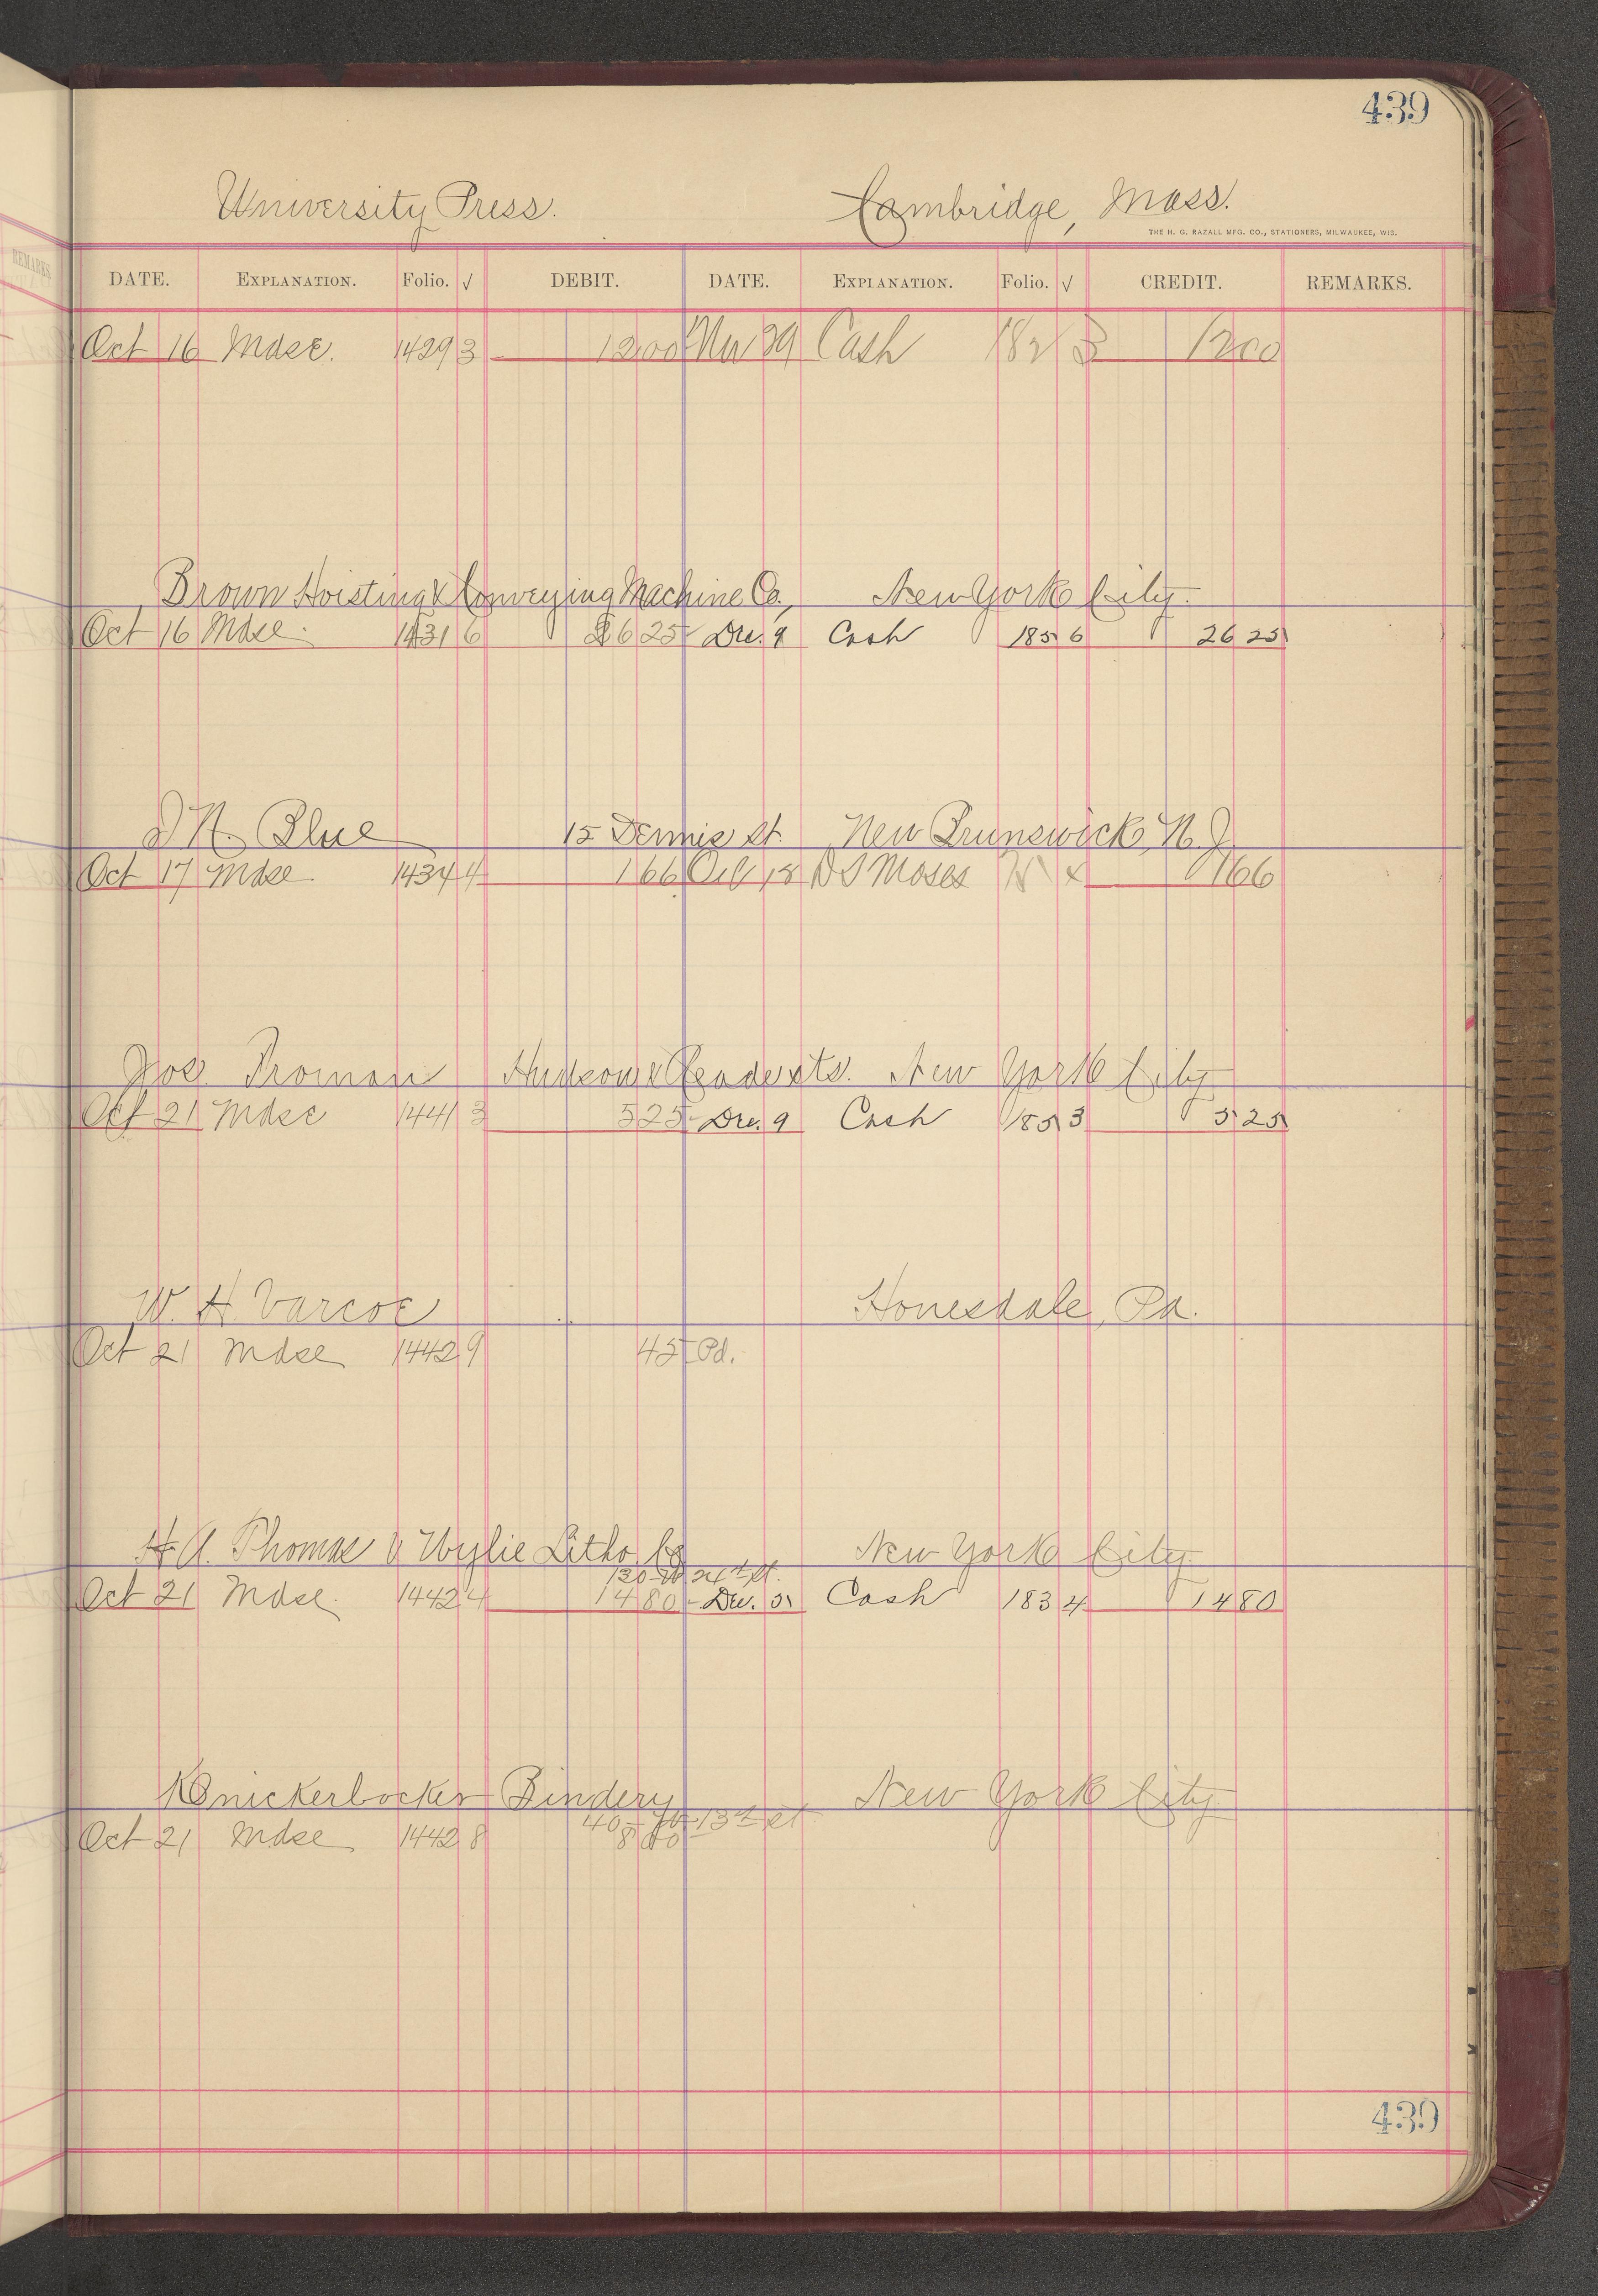 439
University Press. Cambridge, Mass.
THE H. G. RAZALL MFG. CO., STATIONERS, MILWAUKEE, WIS.
REMARKS
DATE. EXPLANATION. Folio. √ DEBIT. DATE. EXPLANATION. Folio. √ CREDIT. REMARKS.
Oct 16 Mdse. 1429 3 12 00 29 Cash 182 3 12 00
Brown Hoisting & Conveying Machine Co., New York City.
Oct 16 Mdse. 1431 6 26 25 Dec. 9 Cash 185 6 26 25
Blue 15 Dennis St. New Brunswick, N. J.
Oct 17 Mdse 1434 4 1 66 Oct 18 D S Moses 1 66
Jos. Froman Hudson & Reade sts. New York City
Oct 21 Mdse 1441 3 5 25 Dec. 9 Cash 185 3 5 25
W. H. Varcoe Honesdale, Pa.
Oct 21 Mdse 1442 9 45 Pd.
H. A. Thomas & Wylie Litho. Co New York City
130 W 24th St.
Oct 21 Mdse. 1442 4 14 80 Dec. 5 Cash 183 4 14 80
Knickerbocker Bindery New York City
13th st
Oct 21 Mdse 1442 8 8 00
439